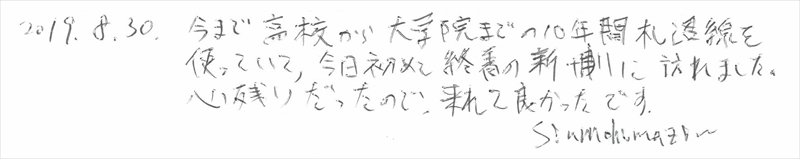 2019.8.30. 今まで高校から大学院までの10年間札沼線を
使っていて、今日初めて終着の新十津川に訪れました。
心残りだったので、来れて良かったです。